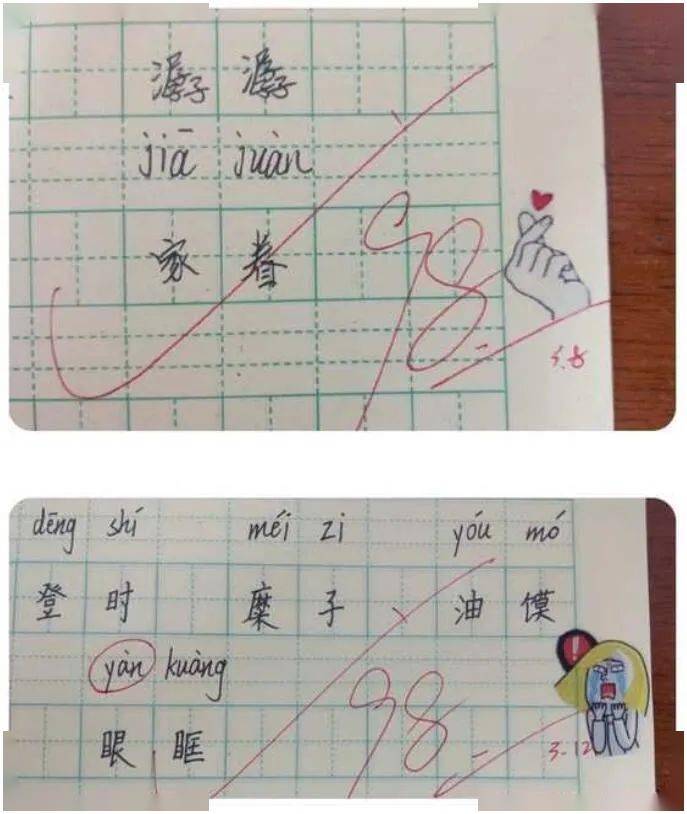 潺 潺
jiā juàn
家 眷
98-
3.8
dēng shí méi zi yóu mó
登 时 糜 子 油 馍
yàn kuàng
眼 眶
98-
3.12